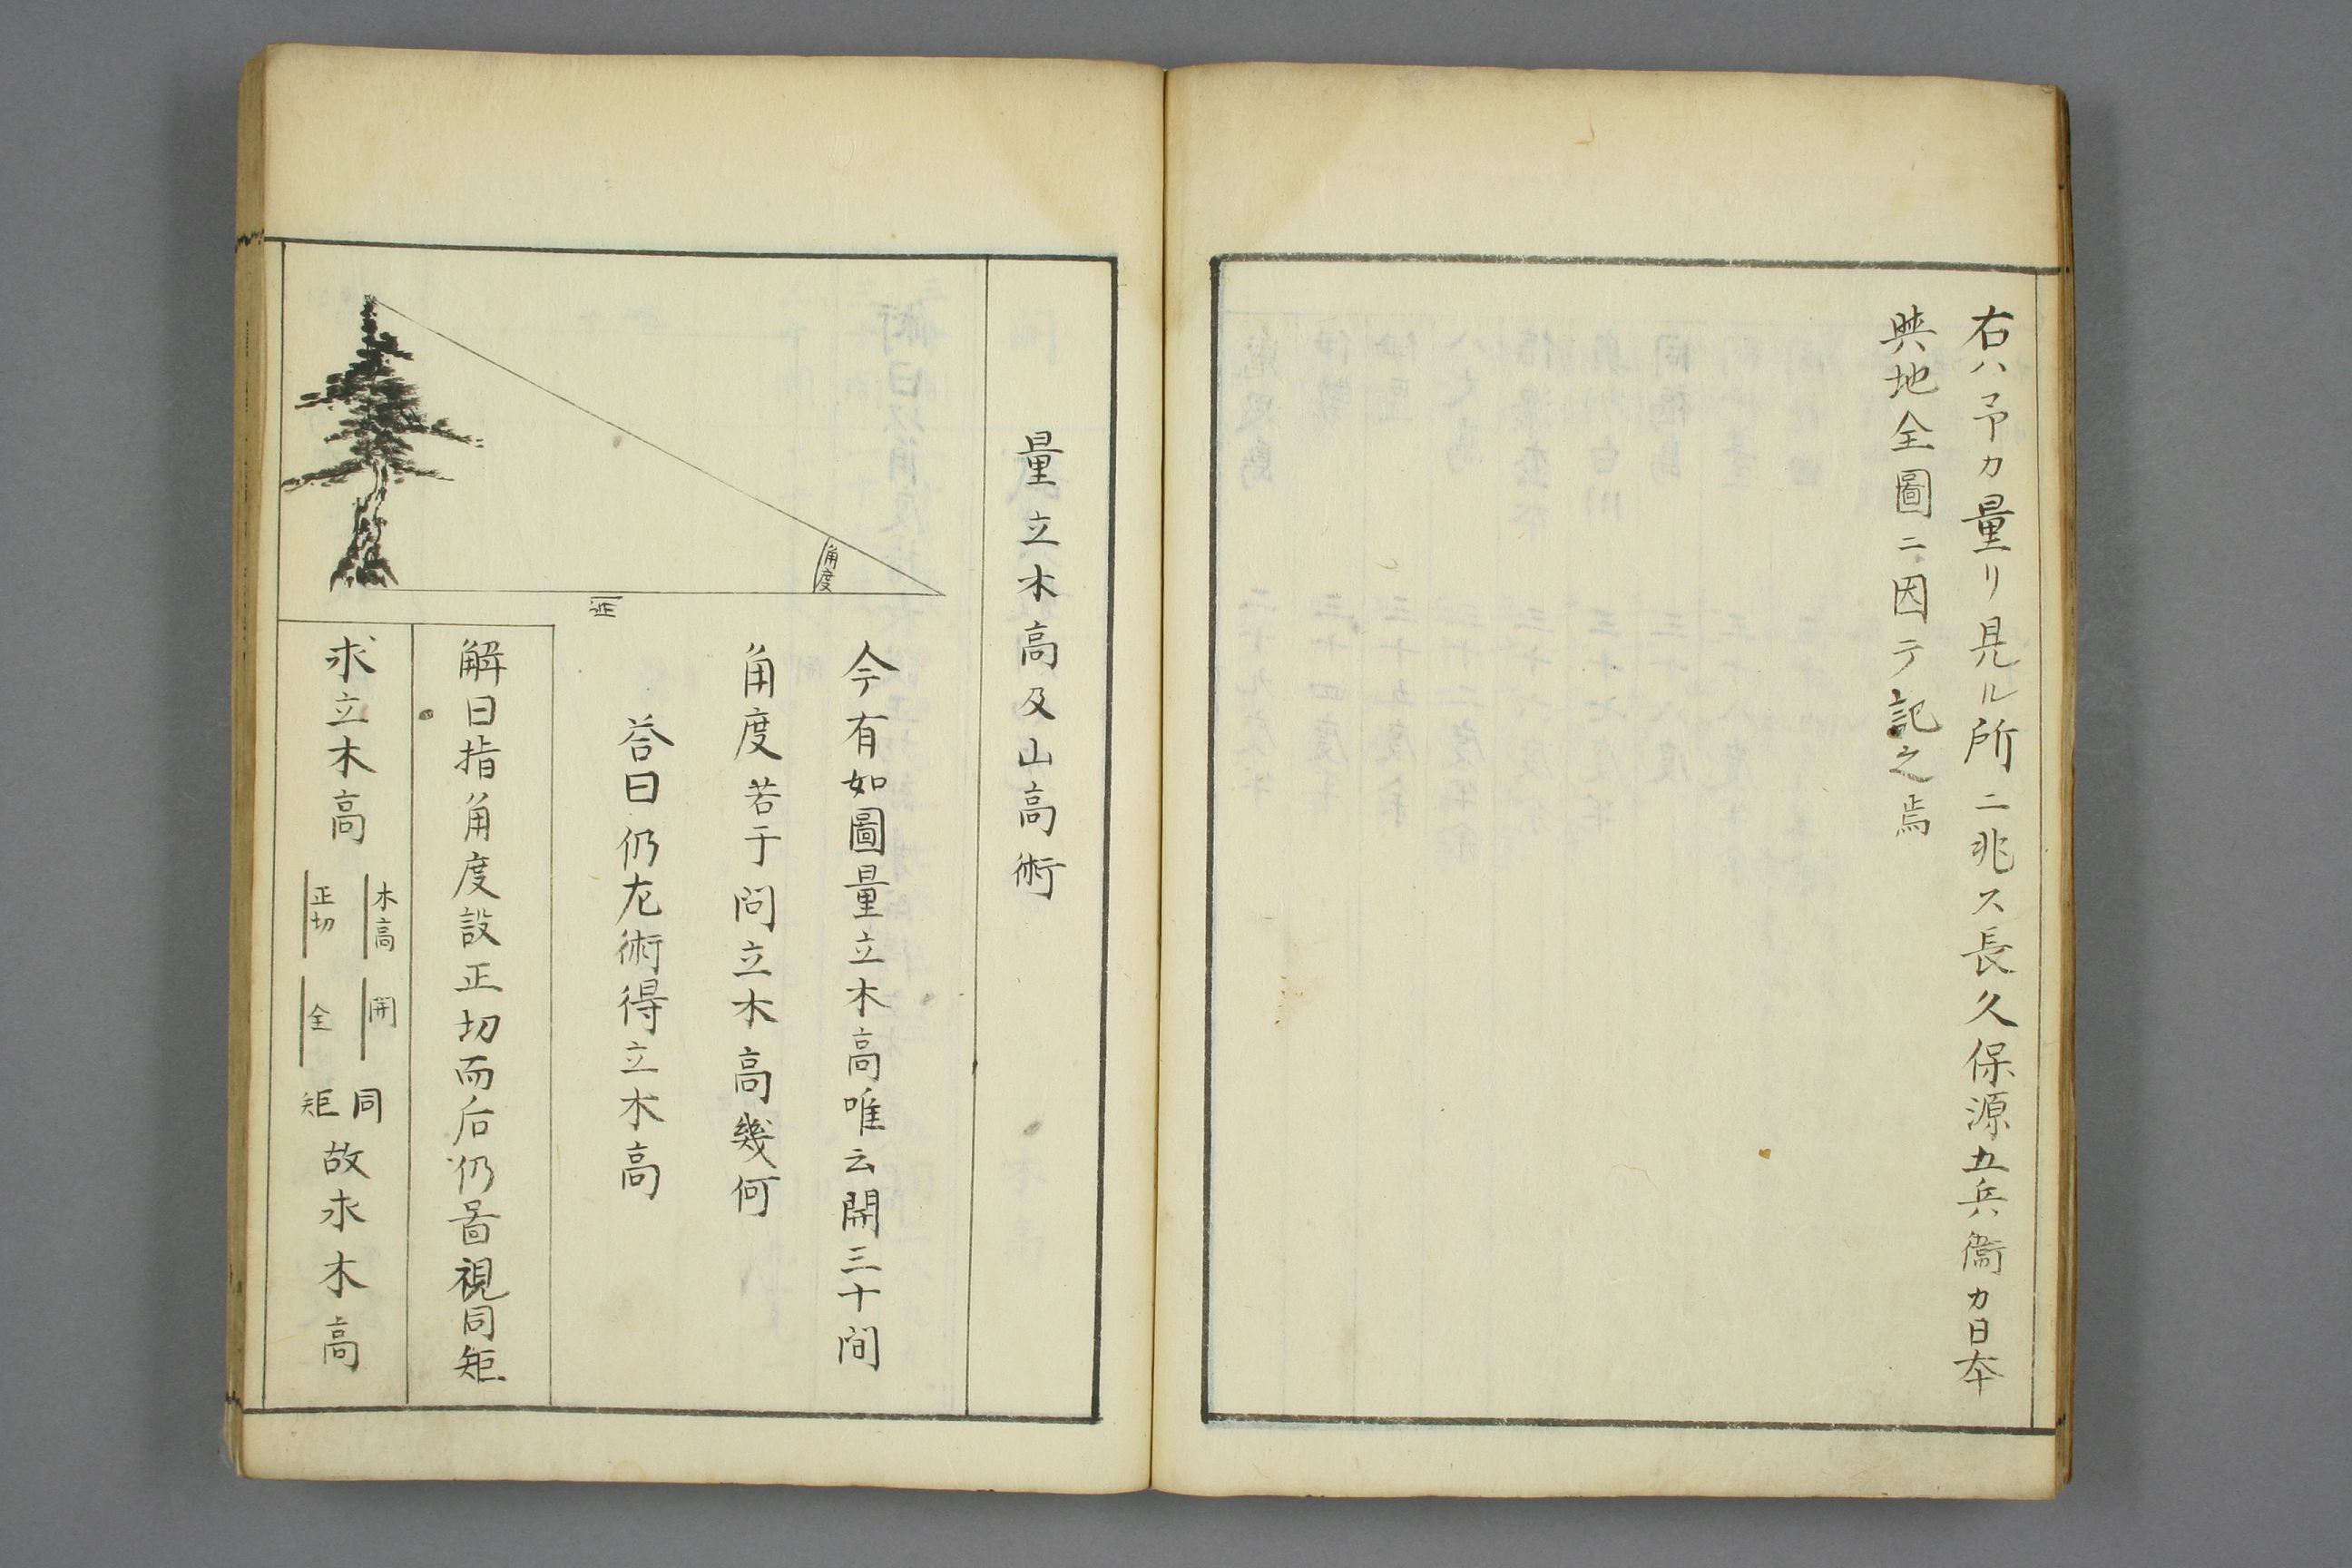 右ハ予カ量リ見ル所ニ兆ス長久保源五兵衞カ日本
輿地全圖ニ因テ記之焉
量立木高及山高術
角度
今有如圖量立木高唯云開三十間
角度若干問立木高幾何
答曰仍左術得立木高
解曰指角度設正切而后仍啚視同矩
求立木高
木高 開
正切 全
同矩
故求木高